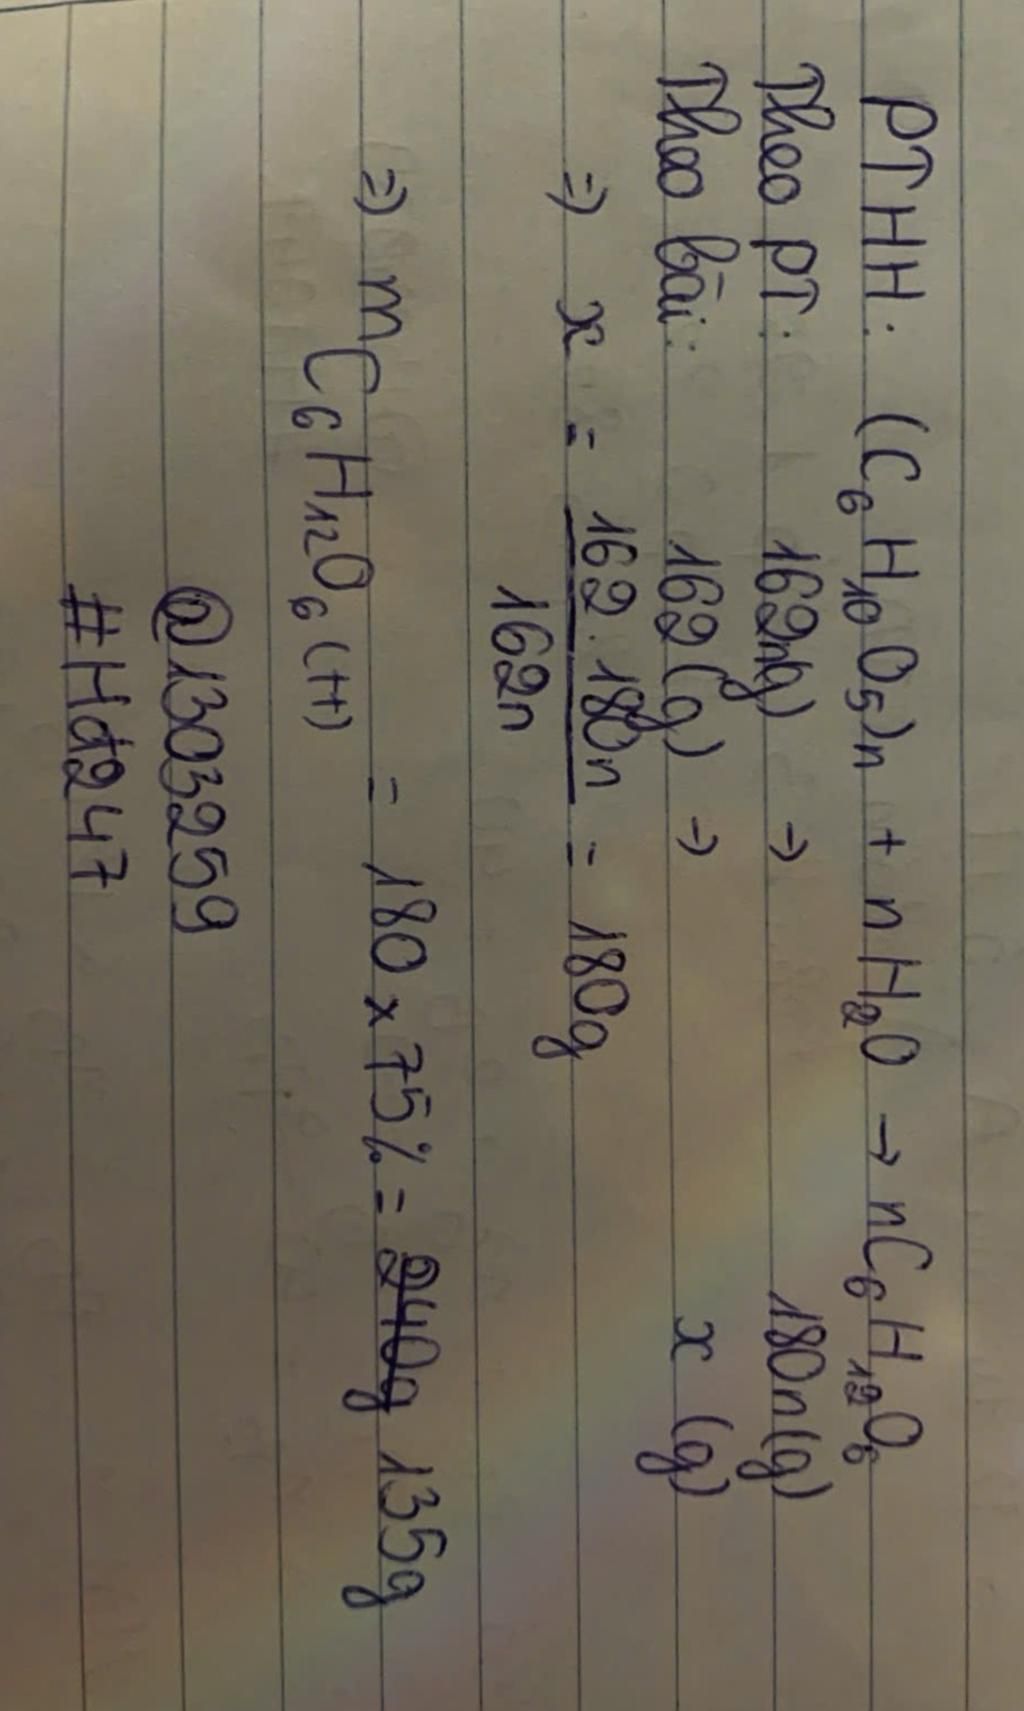 PTHH: (C₆H₁₀O₅)n + nH₂O → nC₆H₁₂O₆
Theo PT: 162n(g) → 180n(g)
Theo bài: 162(g) → x (g)
=> x = 162.180n / 162n = 180g
=> m C₆H₁₂O₆ (tt) = 180 x 75% = 240g 135g
@1303259
#Hd247